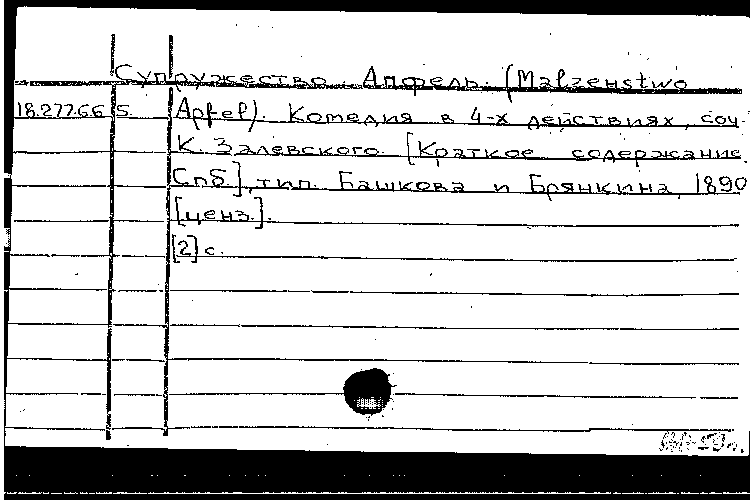 Супружество Апфель. (Malzenstwo
18.277.66 5. Apfel). Комедия в 4-х действиях, соч.
К. Залевского. [Краткое содержание.
Спб.], тип. Башкова и Брянкина, 1890
[ценз.].
[2] с.